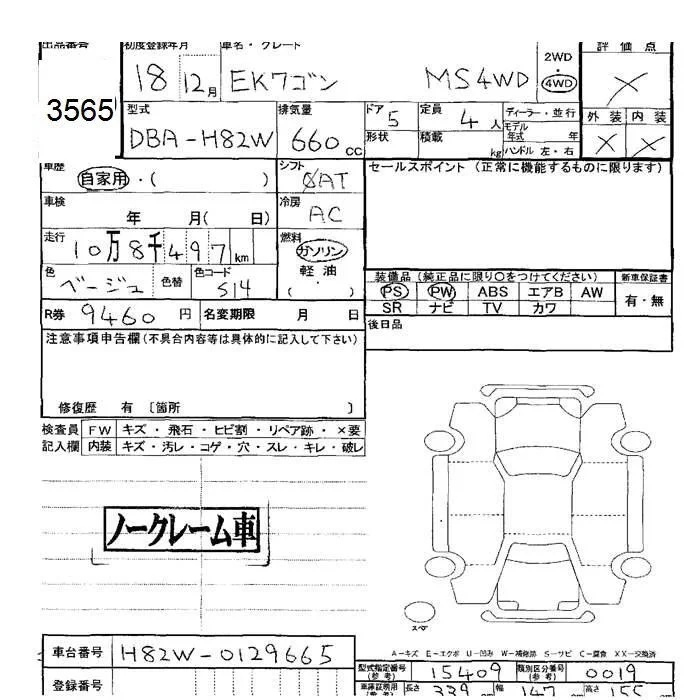 出品番号 初度登録年月 車名・グレード 2WD 評価点
18 12月 EKワゴン MS4WD 4WD ×
3565 型式 排気量 ドア 5 定員 4人 ディーラー・並行 外装 内装
DBA-H82W 660cc 形状 積載 kg モデル年式 年 × ×
ハンドル 左・右
車歴 自家用・( ) シフト AT セールスポイント (正常に機能するものに限ります)
車検 年 月( 日) 冷房 AC
走行 10万8千497km 燃料 ガソリン
軽油
色 ベージュ 色替 色コード S14 ・ ( ) 装備品(純正品に限り○をつけてください) 新車保証書
PS PW ABS エアB AW 有・無
R券 9460円 名変期限 月 日 SR ナビ TV カワ
注意事項申告欄(不具合内容等は具体的に記入して下さい) 後日品
修復歴 有 〔箇所 〕
検査員 FW キズ・飛石・ヒビ割・リペア跡・×要
記入欄 内装 キズ・汚レ・コゲ・穴・スレ・キレ・破レ
ノークレーム車
スペア
A-キズ E-エクボ U-凹み W-補修跡 S-サビ C-腐食 XX-交換済
車台番号 H82W-0129665
型式指定番号(参考) 15409 類別区分番号(参考) 0019
登録番号 車庫証明用(参考) 長さ 339cm 幅 147cm 高さ 155cm